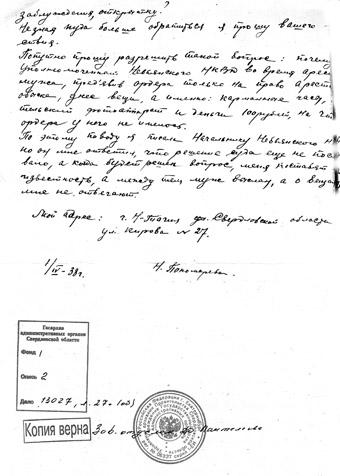 заблуждения, открытку?
Не зная куда больше обратиться я прошу вашего
ствия.
Попутно прошу разрешить такой вопрос: почему
уполномоченный Невьянского НКВД во время арес
мужа, предъявив ордера только на право арест
обыска, две вещи, а именно: карманные часы
фотоаппарат и деньги 100 рублей, на что
ордера у него не имелось.
По этому поводу я писала Начальнику Невьянского Н
но он мне ответил, что решения суда еще не пос
вало, а когда будет решен вопрос, меня поставят
известность, а между тем муж выслан, а о вещах
мне не отвечают.
Мой адрес: г. Н-Тагил Свердловской области
ул. Кирова № 27.
1/IV-38 г.
Н. Пономарева
Госархив
административных органов
Свердловской области
Фонд 1
Опись 2
Дело 13027, л. 27 (об)
Копия верна
Зав. отделом